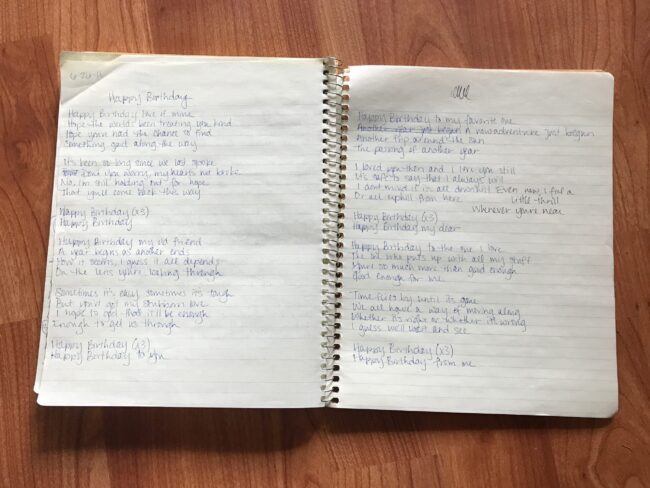 6·26·
Happy Birthday
Happy Birthday love of mine
Hope the world's been treating you kind
Hope you've had the chance to find
Something good along the way
It's been so long since we last spoke
Don't you worry, my heart's not broke
No, I'm still holding out for hope
That you'll come back this way
Happy Birthday (x3)
Happy Birthday
Happy Birthday my old friend
A year begins as another ends
How it seems, I guess it all depends
On the lens you're looking through
Sometimes it's easy, sometimes it's tough
But you've got my stubborn love
I hope to God that it'll be enough
Enough to get us through
Happy Birthday (x3)
Happy Birthday to you
Happy Birthday to my favorite one
Another year just begun A new adventure's just begun
Another trip around the sun
The passing of another year
I loved you then and I love you still
It's safe to say that I always will
I don't mind if it's all downhill Even now, I feel a
Or all uphill from here little thrill
Whenever you're near
Happy Birthday (x3)
Happy Birthday my dear
Happy Birthday to the one I love
The one who puts up with all my stuff
You're so much more than good enough
Good enough for me
Time flies by until it's gone
We all have a way of moving along
Whether it's right or whether it's wrong
I guess we'll wait and see
Happy Birthday (x3)
Happy Birthday from me